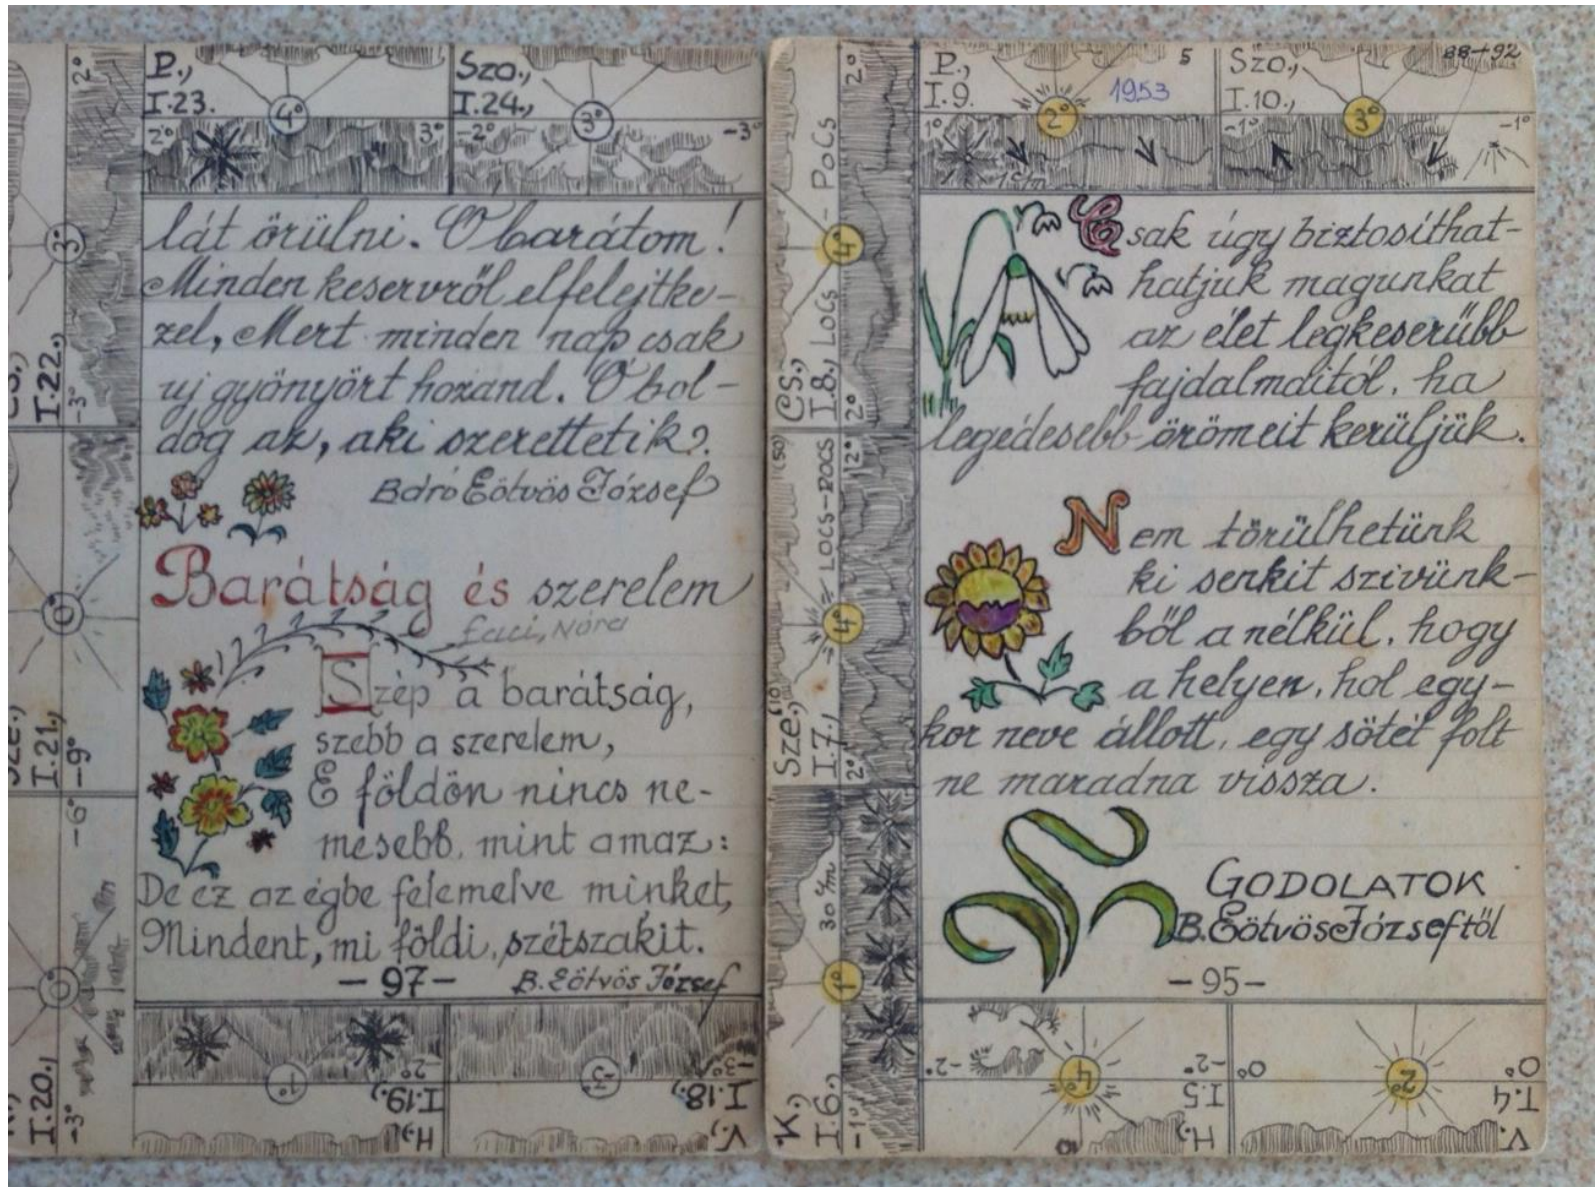 P., I.23.
4°
2°
3°
Szo., I.24.,
3°
-2°
-3°
2°
3°
I.22.,
-3°
0°
I.21.,
-9°
-6°
0°
I.20.,
-3°
lát örülni. O barátom!
Minden keservről elfelejtke-
zel, Mert minden nap csak
uj gyönyört hozand. O bol-
dog az, aki szerettetik?
Báró Eötvös József
Barátság és szerelem
Feci, Nóra
Szép a barátság,
szebb a szerelem,
E földön nincs ne-
mesebb, mint amaz:
De ez az égbe felemelve minket,
Mindent, mi földi, szétszakit.
-97-
B. Eötvös József
1°
2°
H., I.19.,
-3°
-3°
V., I.18.,
P., I.9.
2°
1953
5
1°
Szo., I.10.,
3°
88+92
-1°
-1°
2°
4°
Cs., I.8., LoCs - PoCs
2°
2°
4°
LOCS-POCS
Sze., I.7.,
2°
1°
30 c/m
K., I.6.,
-1°
Csak úgy biztosíthat-
hatjuk magunkat
az élet legkeserübb
fajdalmaitól, ha
legédesebb örömeit kerüljük.
Nem törülhetünk
ki senkit szivünk-
ből a nélkül, hogy
a helyen, hol egy-
kor neve állott, egy sötét folt
ne maradna vissza.
GODOLATOK
B. Eötvös Józseftől
-95-
-2°
4°
-2°
H., I.5.
0°
2°
0°
V. I.4.